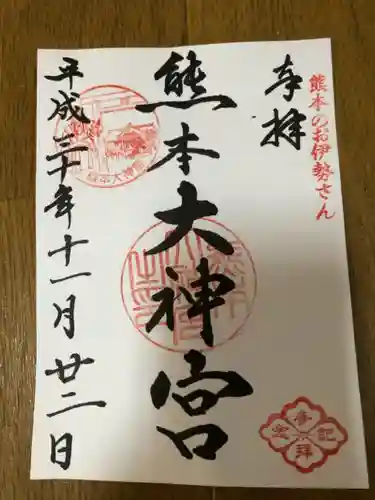 熊本のお伊勢さん
奉拝
熊本大神宮
平成三十年十一月廿二日
熊本大神宮
参拝記念